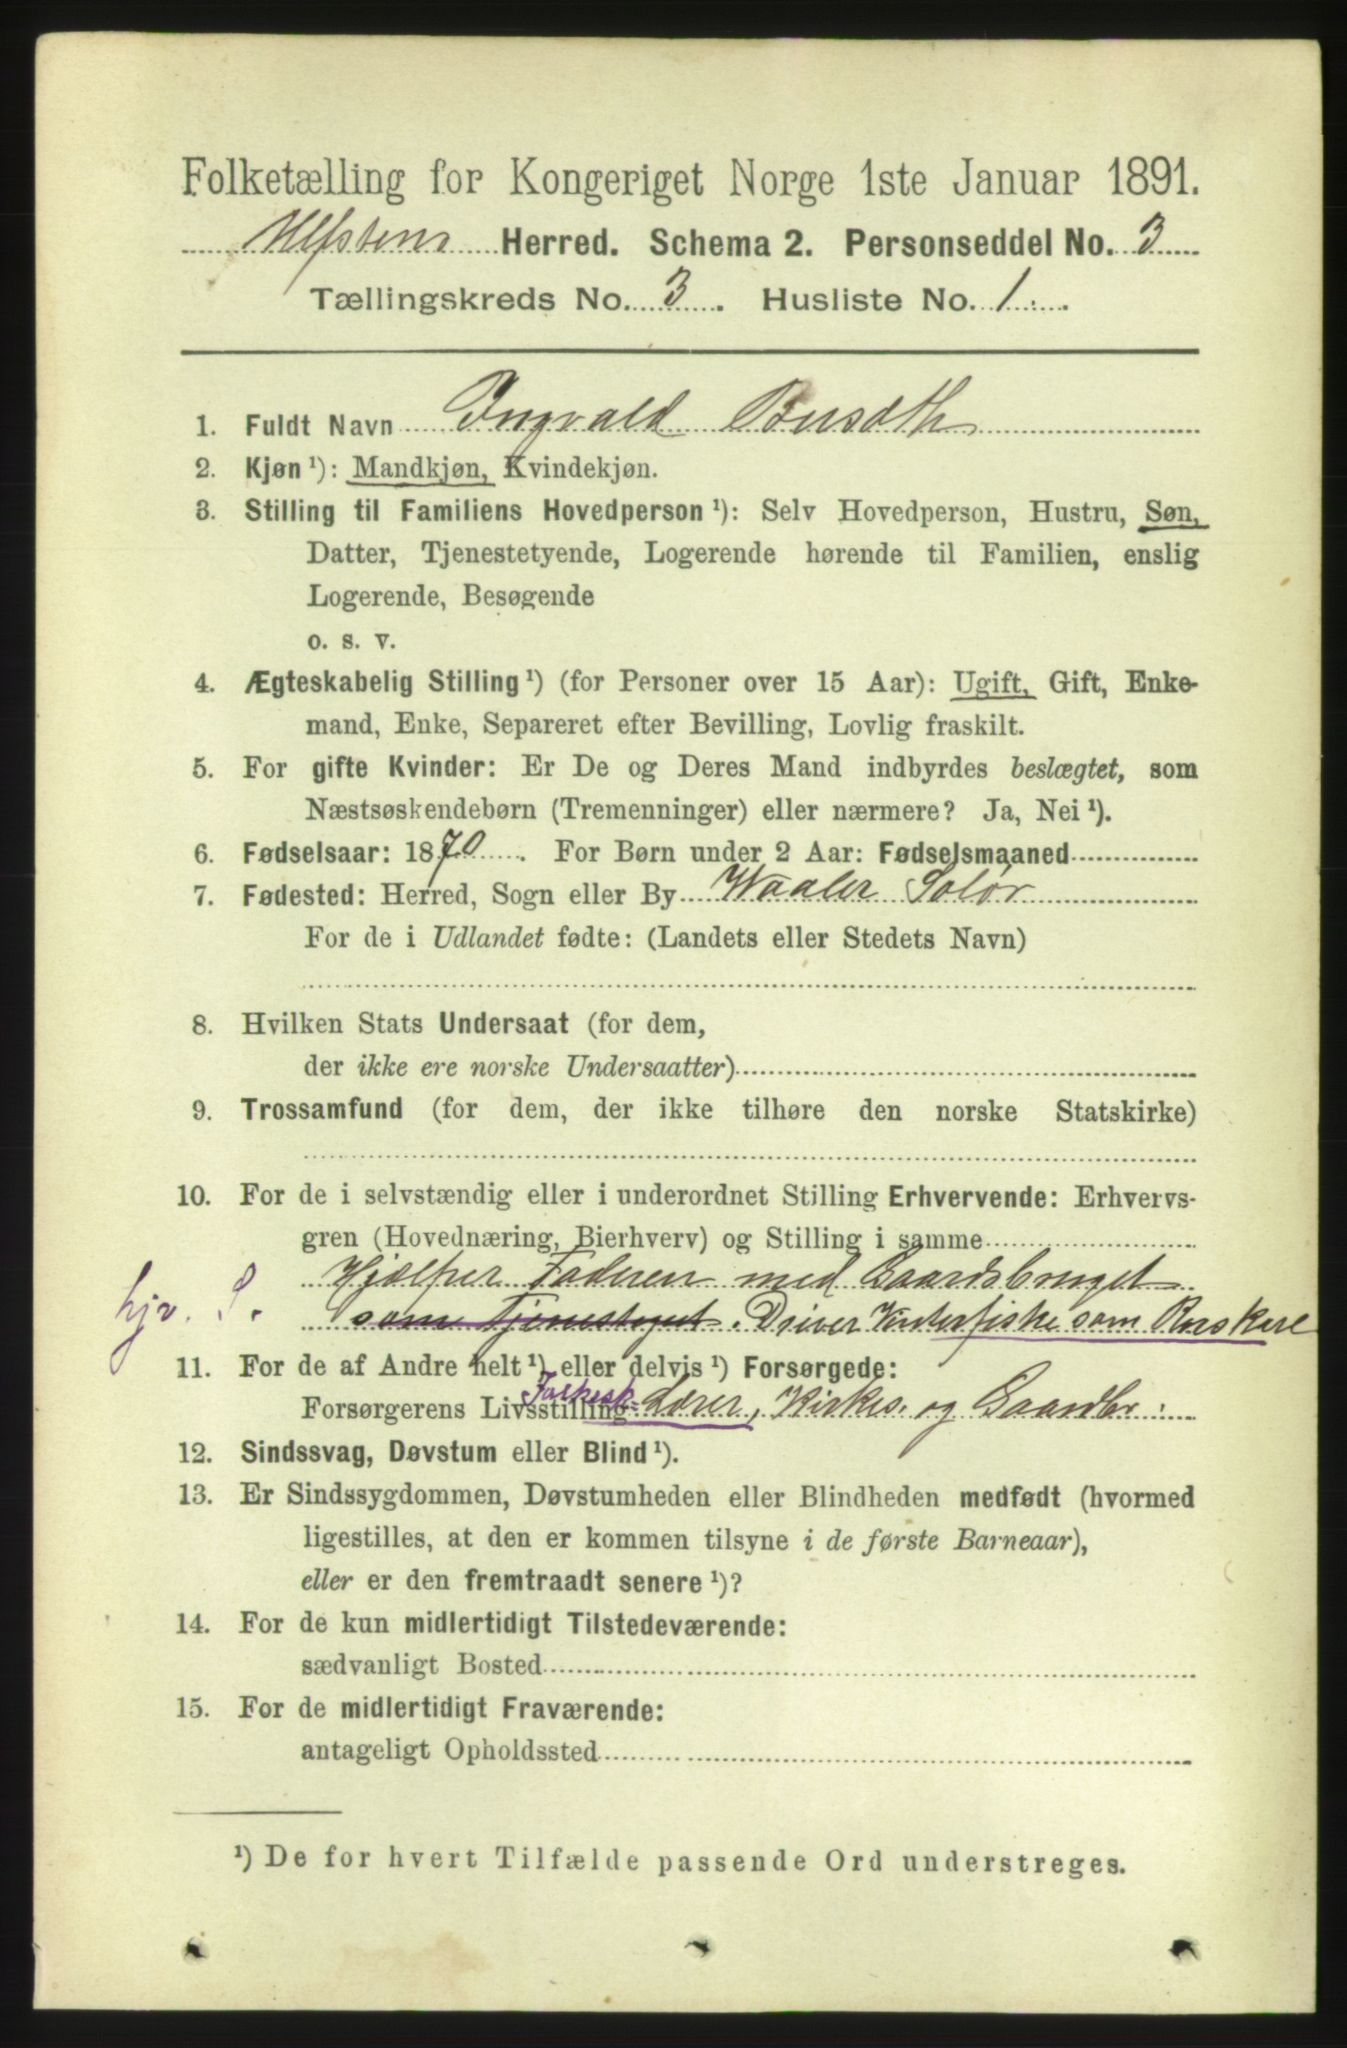 Folketælling for Kongeriget Norge 1ste Januar 1891.
Ulfstens Herred. Schema 2. Personseddel No. 3
Tællingskreds No. 3. Husliste No. 1.
1. Fuldt Navn Ingvald Busæth
2. Kjøn ¹): Mandkjøn, Kvindekjøn.
3. Stilling til Familiens Hovedperson ¹): Selv Hovedperson, Hustru, Søn,
Datter, Tjenestetyende, Logerende hørende til Familien, enslig
Logerende, Besøgende
o. s. v.
4. Ægteskabelig Stilling ¹) (for Personer over 15 Aar): Ugift, Gift, Enke-
mand, Enke, Separeret efter Bevilling, Lovlig fraskilt.
5. For gifte Kvinder: Er De og Deres Mand indbyrdes beslægtet, som
Næstsøskendebørn (Tremenninger) eller nærmere? Ja, Nei ¹).
6. Fødselsaar: 1870. For Børn under 2 Aar: Fødselsmaaned
7. Fødested: Herred, Sogn eller By Waaler Solør
For de i Udlandet fødte: (Landets eller Stedets Navn)
8. Hvilken Stats Undersaat (for dem,
der ikke ere norske Undersaatter)
9. Trossamfund (for dem, der ikke tilhøre den norske Statskirke)
10. For de i selvstændig eller i underordnet Stilling Erhvervende: Erhvervs-
gren (Hovednæring, Bierhverv) og Stilling i samme
Hjælper Faderen med Gaardsbruget
hjv. S. som Tjenestegut. Driver Vinterfiske som Rorskarl
11. For de af Andre helt ¹) eller delvis ¹) Forsørgede:
Forsørgerens Livsstilling Folkesk. Lærer, Kirkes. og Gaardbr.
12. Sindssvag, Døvstum eller Blind ¹).
13. Er Sindssygdommen, Døvstumheden eller Blindheden medfødt (hvormed
ligestilles, at den er kommen tilsyne i de første Barneaar),
eller er den fremtraadt senere ¹)?
14. For de kun midlertidigt Tilstedeværende:
sædvanligt Bosted
15. For de midlertidigt Fraværende:
antageligt Opholdssted
¹) De for hvert Tilfælde passende Ord understreges.